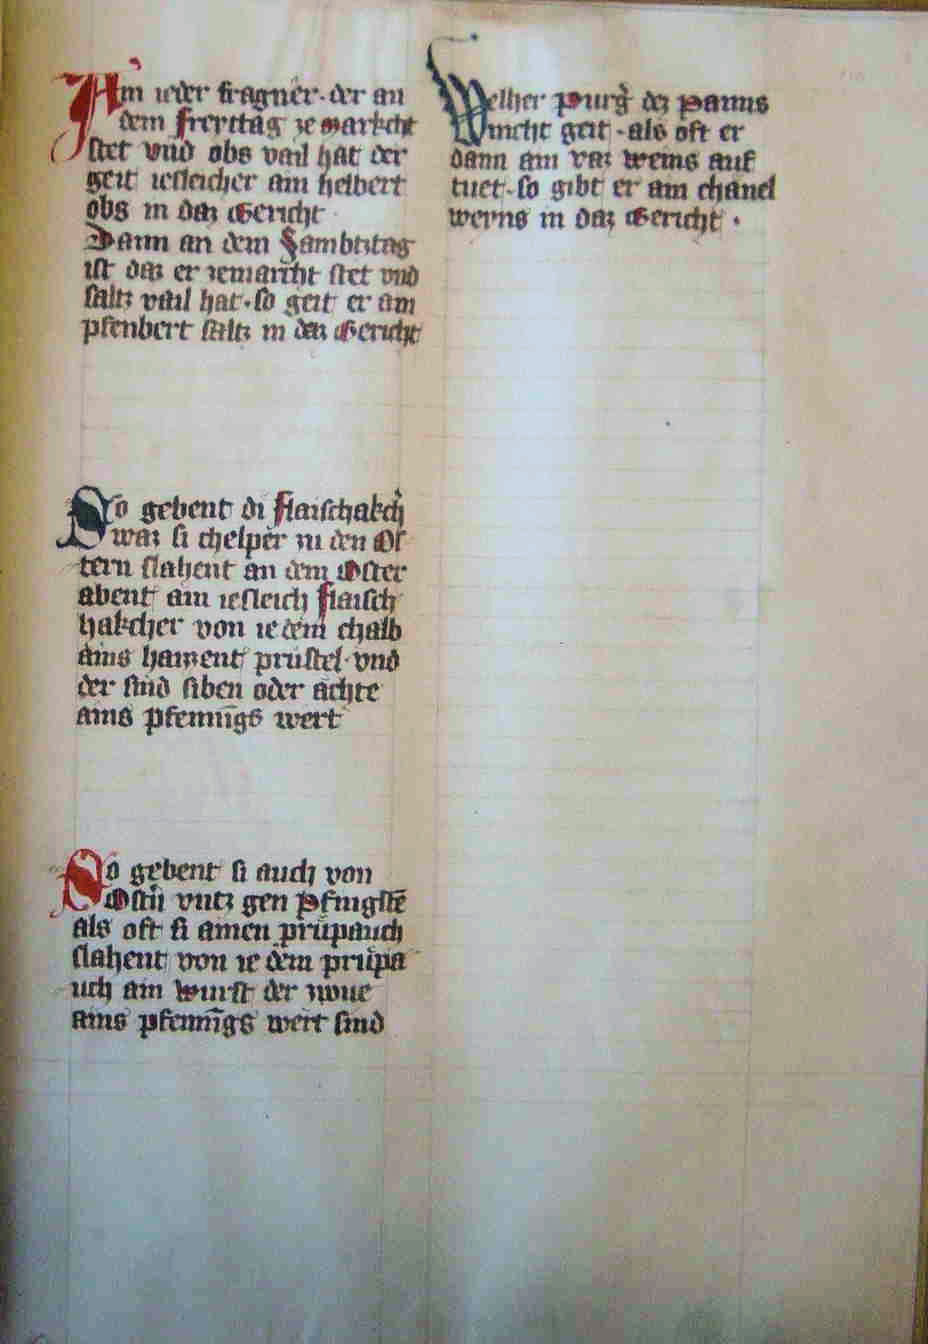 Am ieder fragner · der an
dem freyttag ze markcht
stet vnd obs vail hat der
geit iesleicher ain helbert
obs in daz Gericht ·
Dann an dem Sambtztag
ist daz er zemarcht stet vnd
saltz vail hat · so geit er ain
pfenbert saltz in daz Gericht
So gebent di flaischakch̕
waz si chelper zu den Os
tern slahent an dem Oster
abent ain iesleich flaisch
hakcher von iedem chalb
ains prüstel · vnd
der sind siben oder achte
ains pfenni̅gs wert
So gebent si auch von
Ostn̕ vntz gen Pfingste̅
als oft si ainen prüpauch
slahent von iedem prüpa
uch ain wurst der zwue
ains pfenni̅gs wert sind
Welher Purg̕ dez Panns
nicht geit · als oft er
dann ain vaz weins auf
tuet · so gibt er ain chandel
weyns in daz Gericht ·